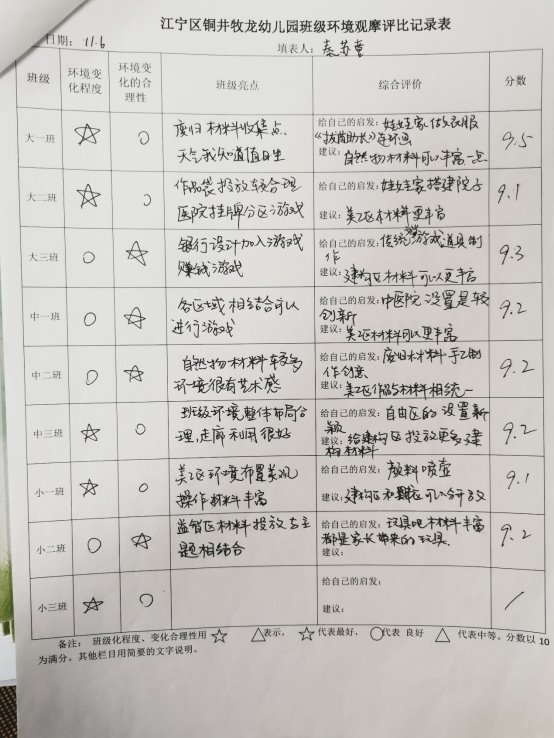 江宁区铜井牧龙幼儿园班级环境观摩评比记录表
日期：11.6 填表人：秦苏童
班级 环境变化程度 环境变化的合理性 班级亮点 综合评价 分数
大一班 ☆ ○ 废旧材料收集点、
天气我知道值日生
给自己的启发：娃娃家做衣服
《拔苗助长》连环画
建议：自然物材料可以丰富一点
9.5
大二班 ☆ ○ 作品袋投放较合理
医院挂牌分区游戏
给自己的启发：娃娃家搭建院子
建议：美工区材料更丰富
9.1
大三班 ○ ☆ 银行设计加入游戏
赚钱游戏
给自己的启发：传统游戏道具制
作
建议：建构区材料可以更丰富
9.3
中一班 ○ ☆ 各区域相结合可以
进行游戏
给自己的启发：中医院设置是较
创新
建议：美工区材料可以更丰富
9.2
中二班 ○ ☆ 自然物材料较多
环境很有艺术感
给自己的启发：废旧木材料手工制
作创意
建议：美工区作品与材料相统一
9.2
中三班 ☆ ○ 班级环境整体布局合
理，走廊利用很好
给自己的启发：自由区的设置新
颖
建议：给建构区投放更多建
构材料
9.2
小一班 ☆ ○ 美工区环境布置美观
操作材料丰富
给自己的启发：颜料喷壶
建议：建构区和区可以分开放
9.1
小二班 ○ ☆ 益智区材料投放与主
题相结合
给自己的启发：玩具吧材料丰富
都是家长带来的玩具.
建议：
9.2
小三班 ☆ ○
给自己的启发：
建议：
/
备注： 班级化程度、变化合理性用☆ △表示，☆代表最好，○代表 良好 △ 代表中等。分数以 10
为满分。其他栏目用简要的文字说明。